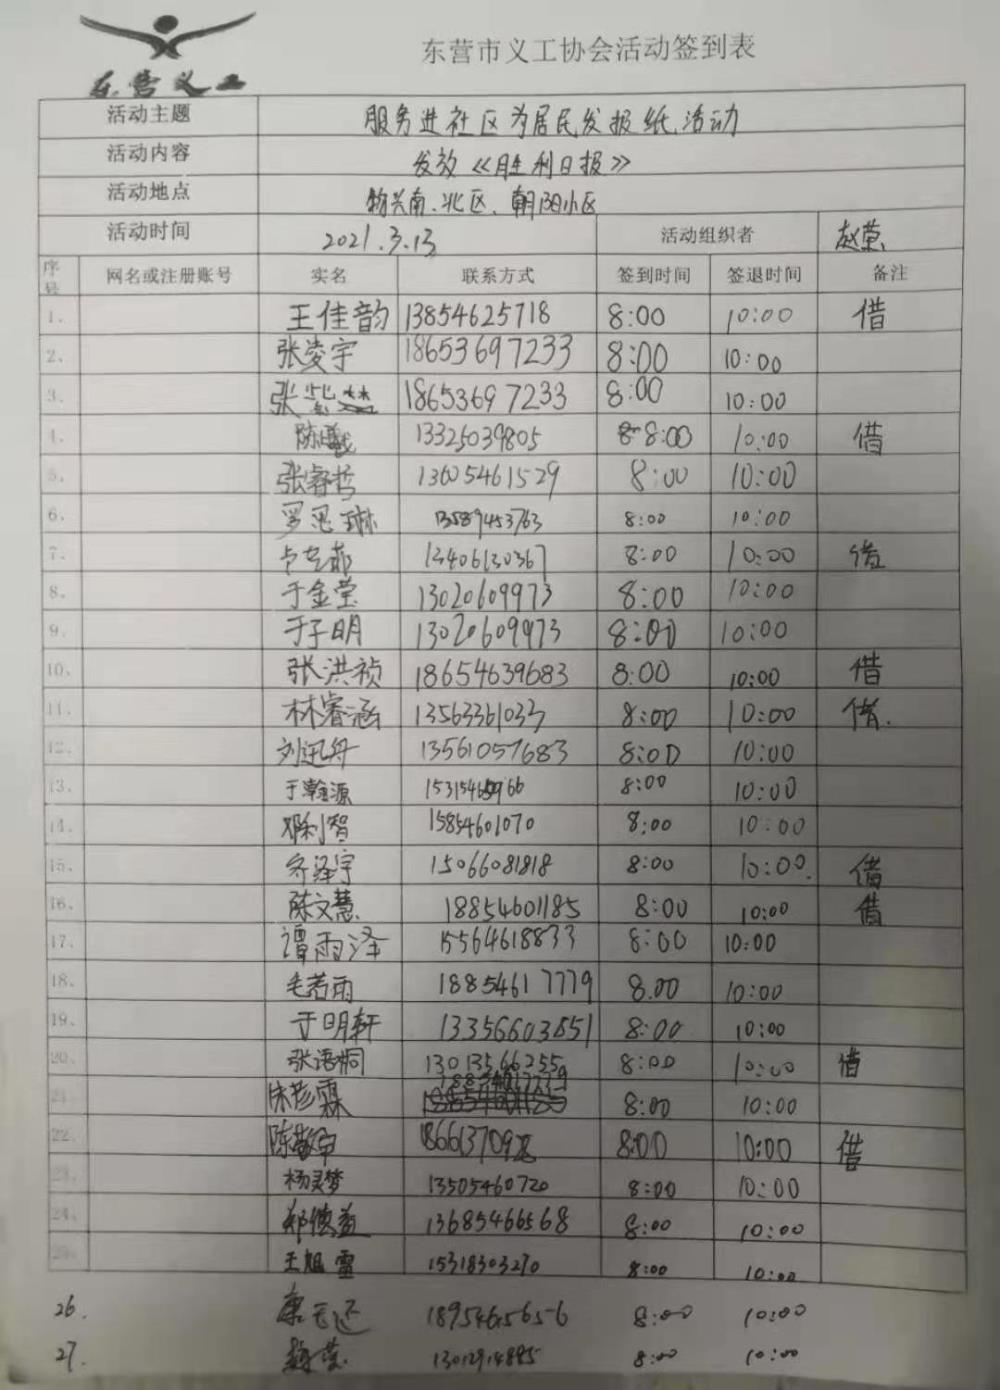 东营义工
东营市义工协会活动签到表
活动主题 服务进社区为居民发报纸活动
活动内容 发放《胜利日报》
活动地点 物兴南、北区、朝阳小区
活动时间 2021.3.13 活动组织者 赵荣
序号 网名或注册账号 实名 联系方式 签到时间 签退时间 备注
1. 王佳韵 13854625718 8:00 10:00 借
2. 张凌宇 18653697233 8:00 10:00
3. 张紫 18653697233 8:00 10:00
4. 陈 13325039805 8:00 10:00 借
5. 张睿哲 13605461529 8:00 10:00
6. 罗思琳 13589453763 8:00 10:00
7. 13406130367 8:00 10:00 借
8. 于金莹 13020609973 8:00 10:00
9. 于子明 13020609973 8:00 10:00
10. 张洪祯 18654639683 8:00 10:00 借
11. 林睿涵 13563361033 8:00 10:00 借.
12. 刘迅舟 13561057683 8:00 10:00
13. 于瀚源 8:00 10:00
14. 邓利智 15854601070 8:00 10:00
15. 乔泽宇 15066081818 8:00 10:00. 借
16. 陈文慧 18854601185 8:00 10:00 借
17. 谭雨泽 15564618833 8:00 10:00
18. 毛若雨 18854617779 8.00 10:00
19. 于明轩 13356603851 8:00 10:00
20. 张语桐 13013566255 8:00 10:00 借
21. 宋彦霖 8:00 10:00
22. 陈敬 8:00 10:00 借
23. 杨灵梦 13505460720 8:00 10:00
24. 郑俊益 13685466568 8:00 10:00
25. 王旭雷 15318303270 8:00 10:00
26. 18954656566 8:00 10:00
27. 赵荣 13012914885 8:00 10:00